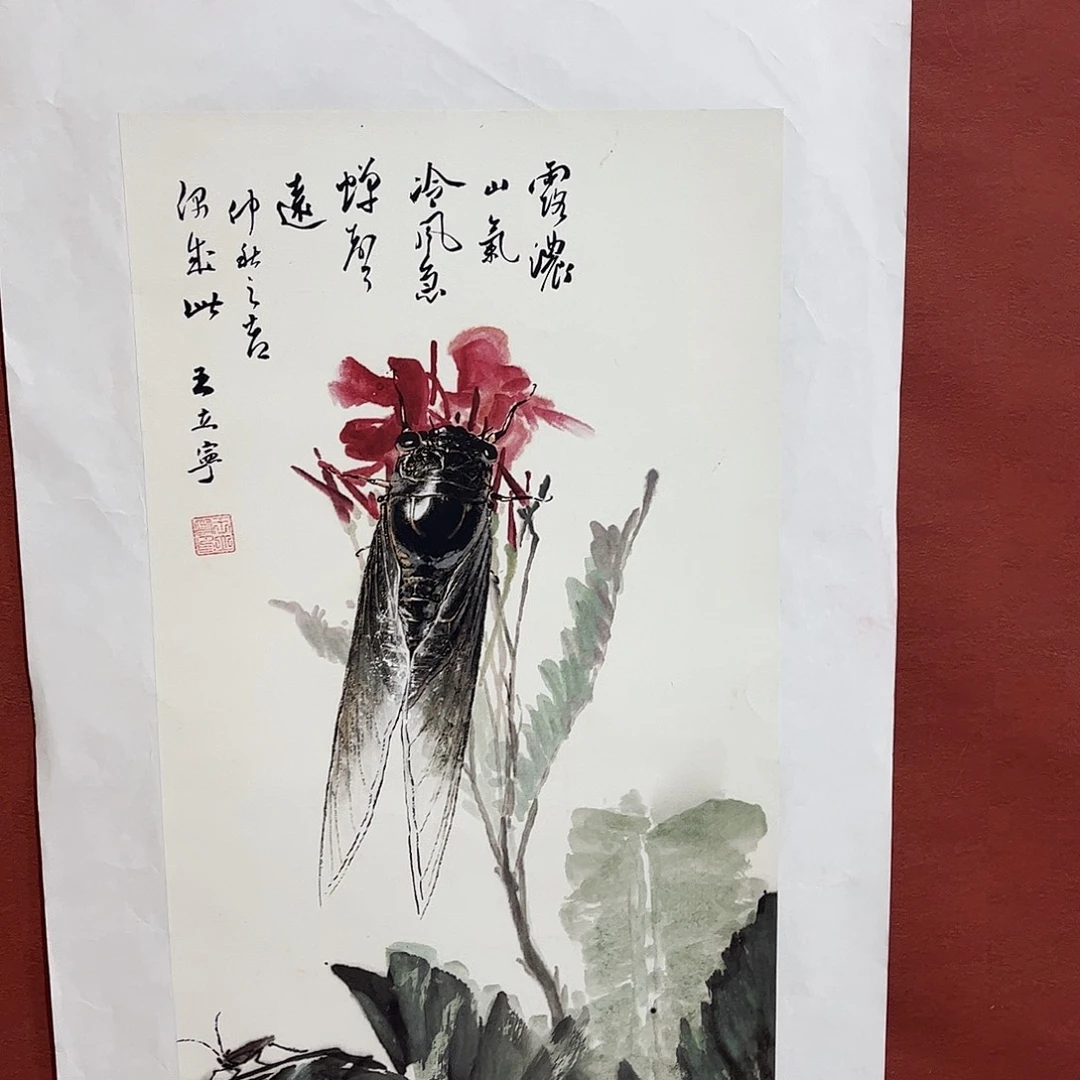 露濃
山氣
冷風急
蟬聲
遠
仲秋之吉
偶成此 王立寧